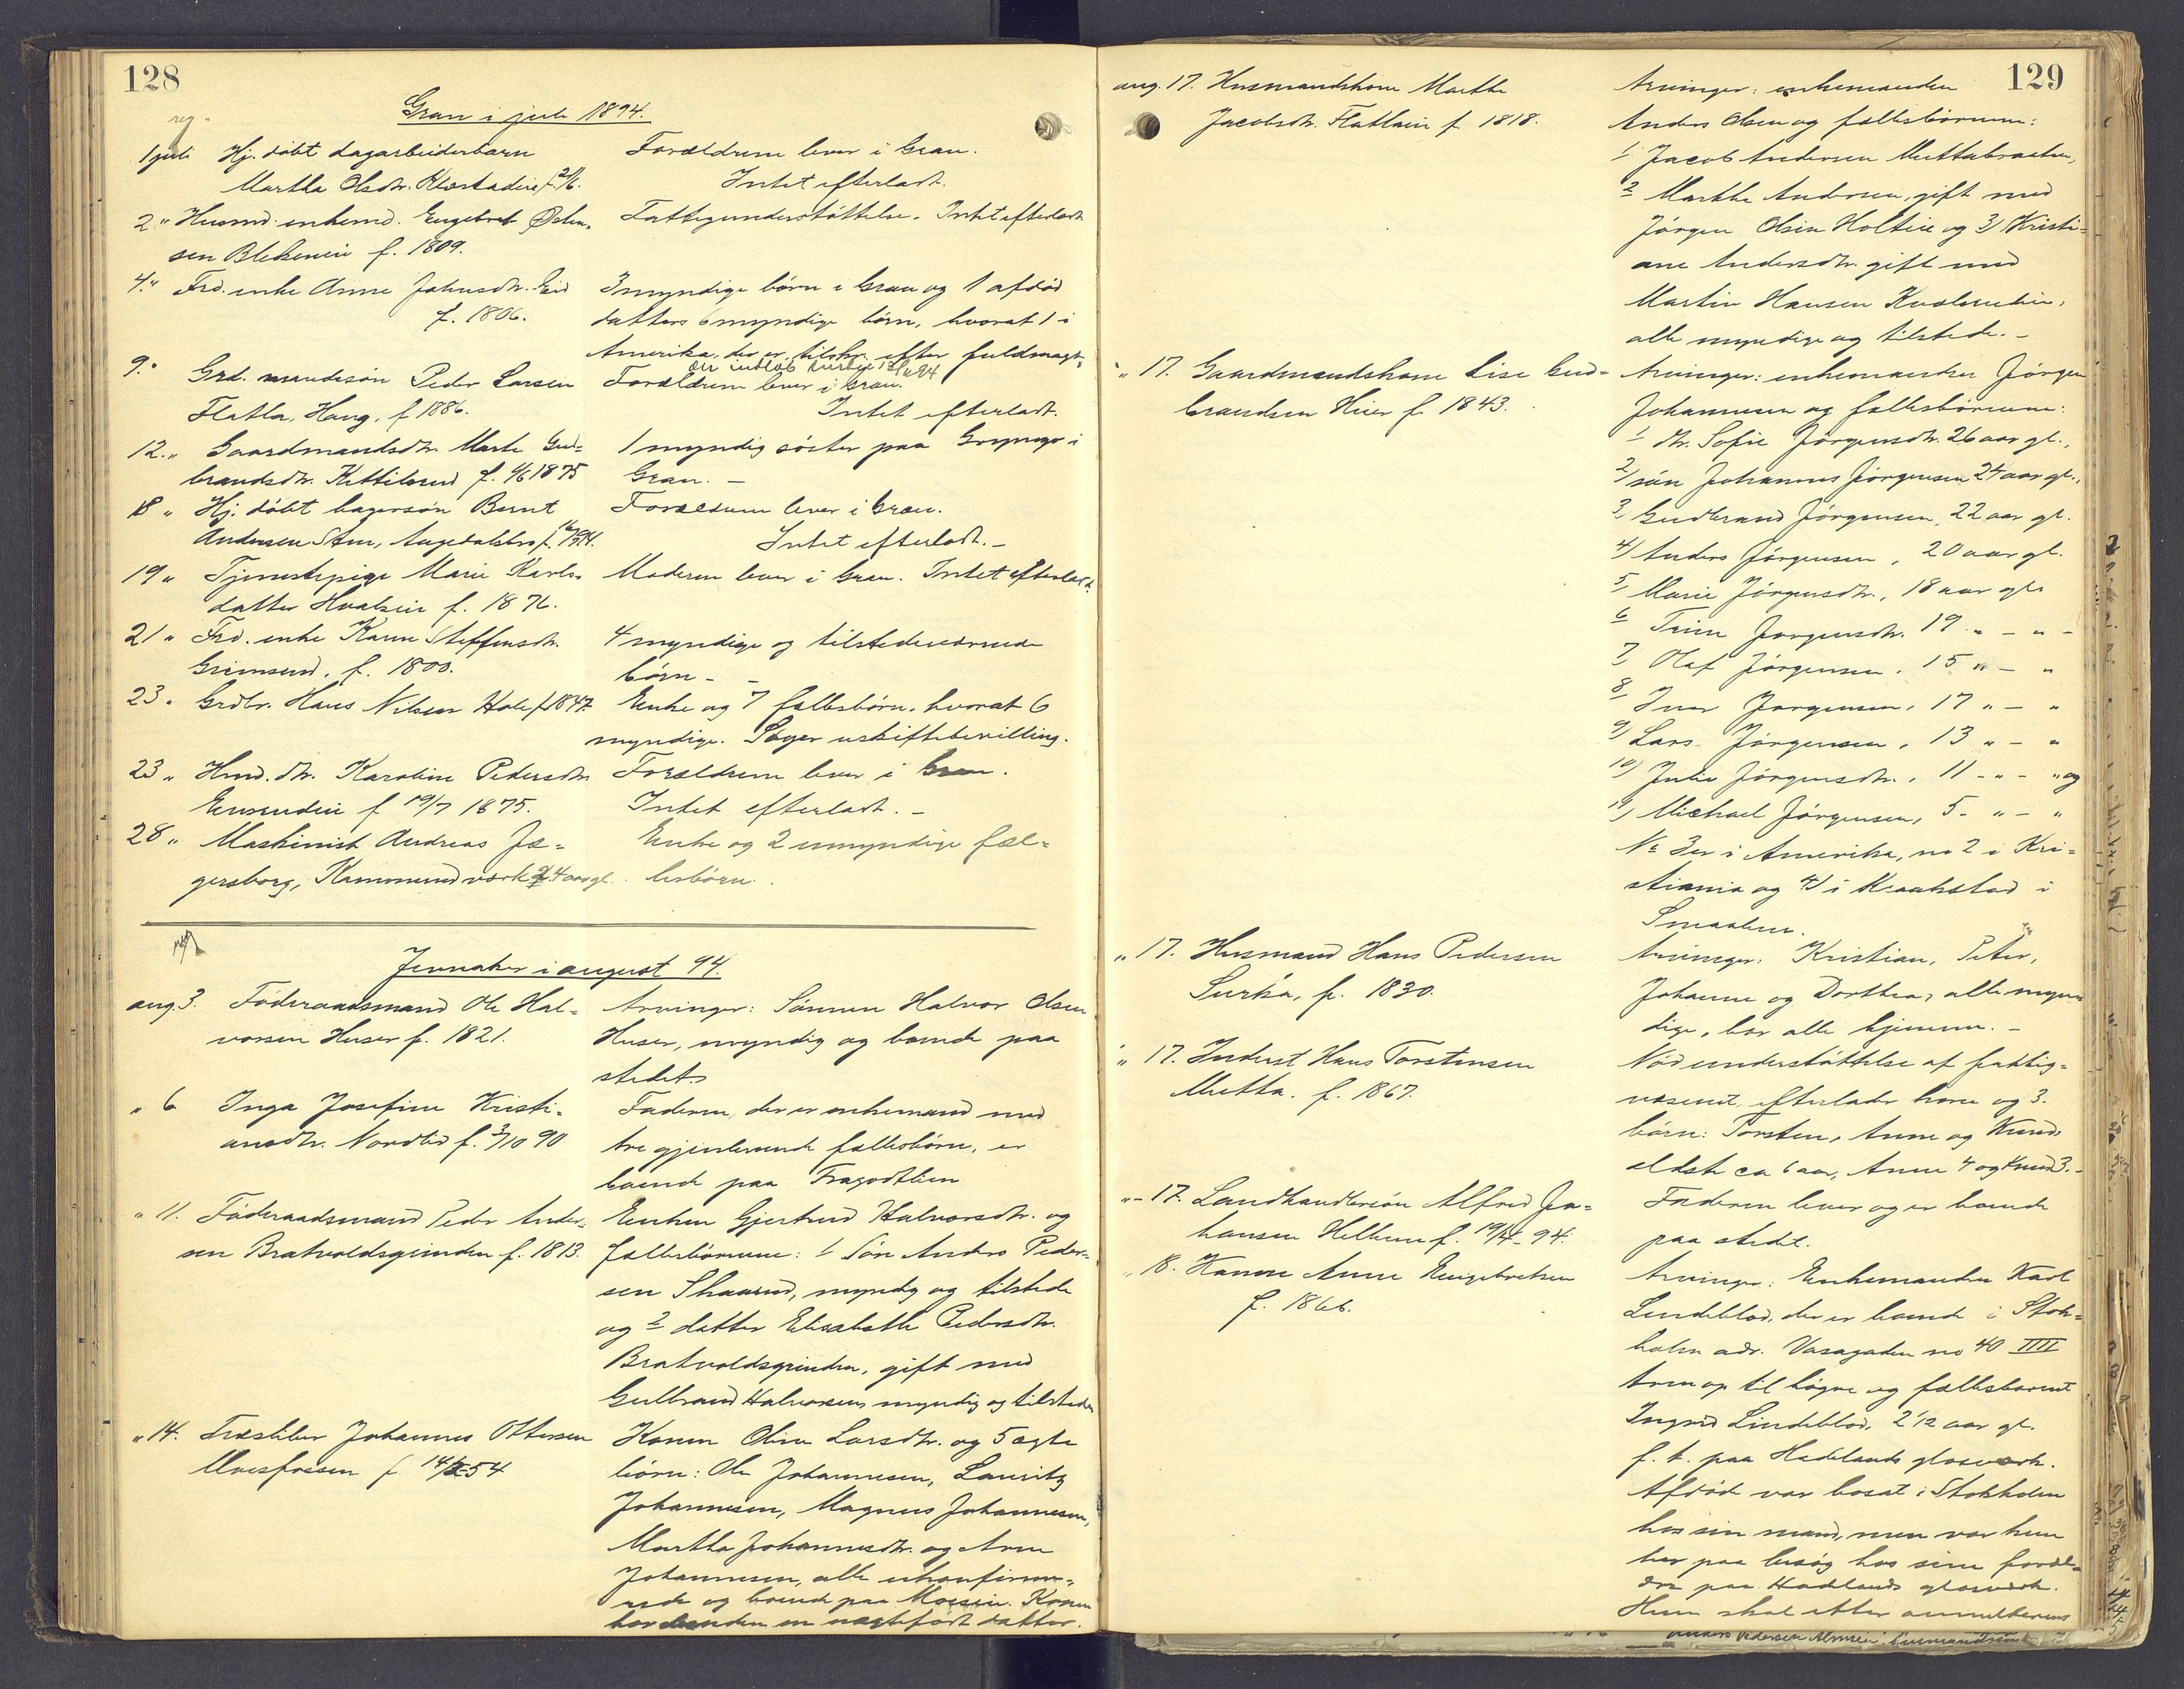 128
Gran i juli 1894.
reg.
1 juli Hj. döbt dagarbeiderbarn
Martha Olsdtr.
Forældrene lever i Gran.
Intet efterladt.
2 " Husmd. enkemd. Engebret Østen-
sen Blekeneie f. 1809.
Fattigunderstöttelse. Intet efterladt
4. " Frd. enke Anne Johnsdtr. Eid
f. 1806.
3 myndige börn i Gran og 1 afdöd
datters 6 myndige börn, hvoraf 1 i
Amerika, der er tilskr. efter fuldmagt.
9. " Grd. mandssön Peder Larsen
Flatla, Haug, f. 1886.
Forældrene lever i Gran.
Intet efterladt.
12. " Gaardmandsdtr. Marte Gud-
brandsdtr. Kittilsrud f. 4/6 1875
1 myndig söster paa Grynager i
Gran. -
18 " Hj. döbt bagersön Bernt
Andersen
Forældrene lever i Gran.
Intet efterladt. -
19 " Tjenestepige Marie Karls-
datter Hvalseie f. 1876.
Moderen lever i Gran. Intet efterladt.
21 " Frd. enke Karen Steffensdtr.
Grimsrud. f. 1800.
4 myndige og tilstedeværende
börn - -
23 " Grdbr. Hans Nilsen Hole f. 1847.
Enke og 7 fællesbörn, hvoraf 6
myndige. Söger uskiftebevilling.
23 " Hmd. dtr. Karoline Pedersdtr.
f. 19/7 1875.
Forældrene lever i Gran.
Intet efterladt. -
28 " Maskinist Andreas Jæ-
gersborg, 44 aar gl.
Enke og 2 umyndige fæl-
lesbörn.
Jevnaker i august 94.
aug. 3. Föderaadsmand Ole Hal-
vorsen Huser f. 1821.
Arvinger: Sönnen Halvor Olsen
Huser, myndig og boende paa
stedet.
" 6 Inga Josefine Kristi-
ansdtr. Nordlid f. 3/10 90
Faderen, der er enkemand med
tre gjenlevende fællesbörn, er
boende paa
" 11. Föderaadsmand Peder Ander-
sen Bratvoldsgrinden f. 1813.
Enken Gjertrud Halvorsdtr. og
fællesbörnene: 1 Sön Anders Peder-
sen Skaarud, myndig og tilstede
og 2 datter Elisabeth Pedersdtr.
Bratvoldsgrinden, gift med
Gulbrand Halvorsen, myndig og tilstede
" 14. Træsliber Johannes Ottersen
Moesfossen f. 14/5-54
Konen Oline Larsdtr. og 5 ægte
börn: Ole Johannesen, Lauritz
Johannesen, Magnus Johannesen,
Martha Johannesdtr. og Arne
Johannesen, alle ukonfirme-
rede og boende paa Moseie. Konen
har desuden en uægtefödt datter.
129
aug. 17. Husmandskone Marthe
Jacobsdtr. Flatlaeie f. 1818.
Arvinger: enkemanden
Anders Olsen og fællesbörnene:
1 Jacob Andersen Muttabraaten,
2 Marthe Andersen, gift med
Jörgen Olsen Holteie og 3) Kristi-
ane Andersdtr. gift med
Martin Hansen
alle myndige og tilstede. -
" 17. Gaardmandskone Lise Gud-
brandsen Hieer f. 1843.
Arvinger: enkemanden Jörgen
Johannesen og fællesbörnene:
1 dtr. Sofie Jörgensdtr. 26 aar gl.,
2) sön Johannes Jörgensen 24 aar gl.,
3, Gudbrand Jörgensen, 22 aar gl.
4) Anders Jörgensen, 20 aar gl.
5, Marie Jörgensdtr., 18 aar gl.
6 Trine Jörgensdtr. 19 " - " -
7 Olaf Jörgensen, 15 " - "
8 Iver Jörgensen, 17 " - "
9) Lars Jörgensen, 13 " - "
10) Julie Jörgensdtr., 11 - " - " og
11) Michael Jörgensen, 5 - " - "
No 3 er i Amerika, no 2 i Kri-
stiania og 4) i Kraakstad i
Smaalene.
" 17. Husmand Hans Pedersen
Surka, f. 1830.
Arvinger: Kristian, Peter,
Johanne og Dorthea, alle myn-
dige, bor alle hjemme. -
" 17. Inderst Hans Torstensen
Mutta. f. 1867.
Nöd understöttelse af fattig-
væsenet. efterlader kone og 3.
börn: Torsten, Anne og Knud.
ældste ca 6 aar, Anne 4 og Knud 3. -
" - 17. Landhandlersön Alfred Jo-
hansen Hellerne f. 19/4-94.
Faderen lever og er boende
paa stedet.
" 18. Konen Anne Engebretsen
f. 1866.
Arvinger: Enkemanden Karl
Lindeblad, der er boende i Stok-
holm adr. Vasagaden no 40 IIII
trin op til högre og fællesbarnet
Ingrid Lindeblad, 2 1/2 aar gl.
f. t. paa Hadelands glasværk.
Afdöde var bosat i Stokholm
hos sin mand, men var kun
her paa besög hos sine foræl-
dre paa Hadelands glasværk.
Hun skal efter anmelderens